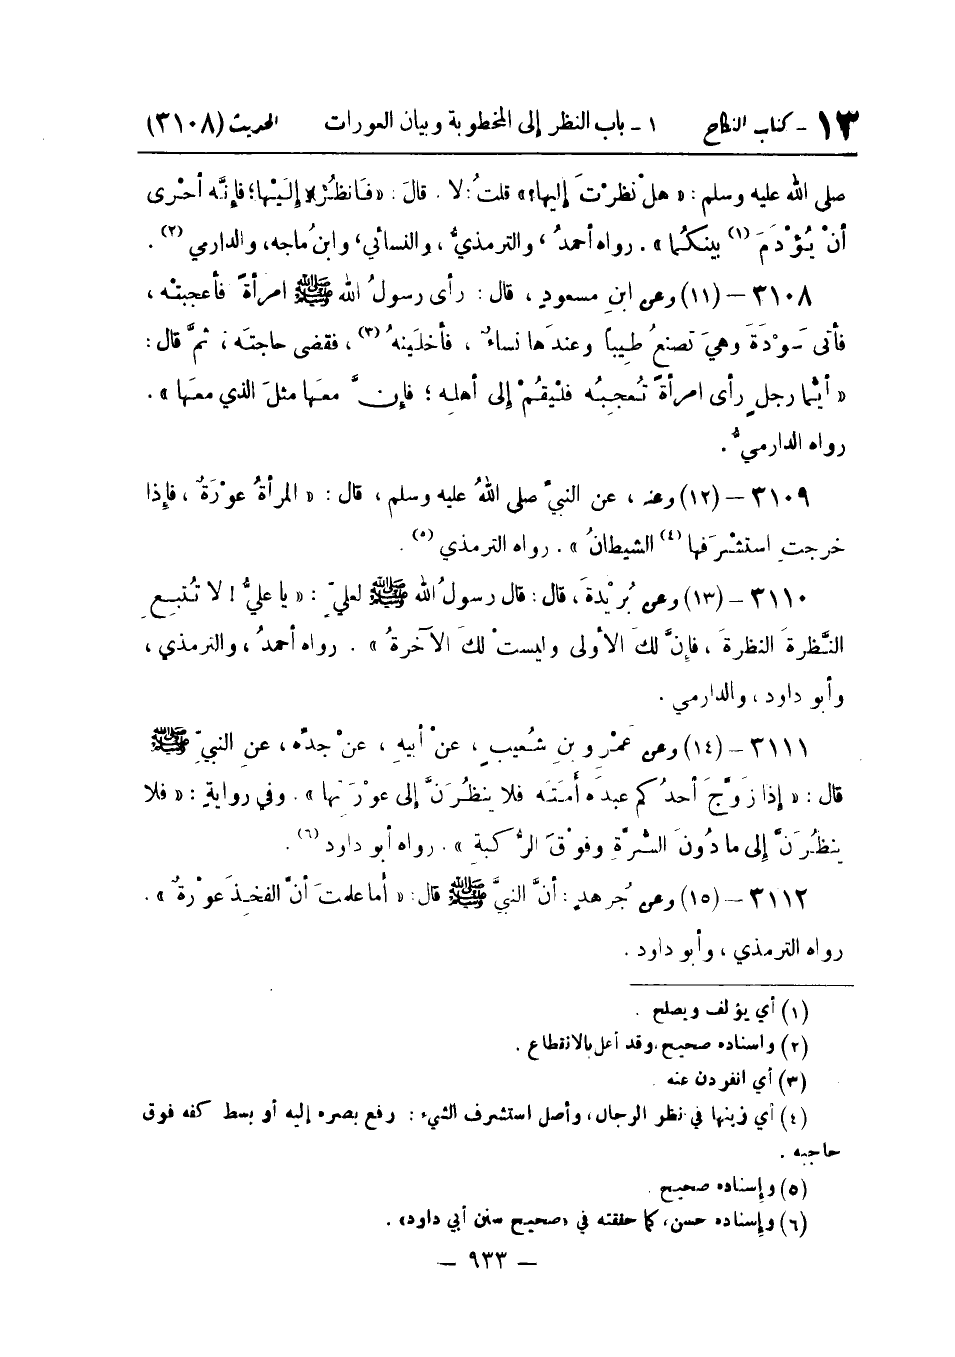 ١٣ - كتاب النكاح ١ - باب النظر إلى المخطوبة وبيان العورات الحديث (٣١٠٨)
صلى الله عليه وسلم : « هل نظرْتَ إليها؟ » قلتُ : لا . قالَ : « فَانظُرْ إِلَيْها ؛ فإِنَّه أحْرى
أنْ يُؤْدَمَ (١) بينكُما » . رواه أحمدُ ، والترمذيُّ ، والنسائي ، وابنُ ماجه ، والدارمي (٢) .
٣١٠٨ – (١١) وعن ابنِ مسعودٍ ، قال : رأى رسولُ الله ﷺ امرأةً فأعجبتْه ،
فأتى سَوْدَةَ وهيَ تصنعُ طِيباً وعندَها نساءٌ ، فأخلَينَه (٣) ، فقضى حاجتَه ، ثمَّ قال :
« أيُّما رجلٍ رأى امرأةً تُعجبُه فلْيقُمْ إلى أهلِه ؛ فإِنَّ معَها مثلَ الذي معَها » .
رواه الدارميُّ .
٣١٠٩ – (١٢) وعنه ، عن النبيِّ صلى اللهُ عليه وسلم ، قال : « المرأةُ عوْرَةٌ ، فإِذا
خرجتِ استشْرَفَها (٤) الشيطانُ » . رواه الترمذي (٥) .
٣١١٠ – (١٣) وعن بُرَيْدةَ ، قال : قال رسولُ الله ﷺ لعليٍّ : « يا عليُّ ! لا تُتبعِ
النَّظرةَ النظرةَ ، فإنَّ لكَ الأولى وليستْ لكَ الآخرةُ » . رواه أحمدُ ، والترمذي ،
وأبو داود ، والدارمي .
٣١١١ – (١٤) وعن عَمْرِو بنِ شُعيبٍ ، عنْ أبيهِ ، عنْ جدِّه ، عنِ النبيِّ ﷺ
قال : « إذا زَوَّجَ أحدُكم عبدَه أَمَتَه فلا ينظُرَنَّ إلى عوْرَتِها » . وفي روايةٍ : « فلا
ينظُرَنَّ إلى ما دُونَ السُّرَّةِ وفوْقَ الرُّكبةِ » . رواه أبو داود (٦) .
٣١١٢ – (١٥) وعن جُرهدٍ : أنَّ النبيَّ ﷺ قال : « أما علمتَ أنَّ الفخِذَ عوْرةٌ » .
رواه الترمذي ، وأبو داود .
(١) أي يؤلف ويصلح .
(٢) واسناده صحيح ، وقد أعل بالانقطاع .
(٣) أي انفردن عنه .
(٤) أي زينها في نظر الرجال ، وأصل استشرف الشيء : رفع بصره إليه أو بسط كفه فوق
حاجبه .
(٥) وإسناده صحيح .
(٦) وإسناده حسن ، كما حققته في «صحيح سنن أبي داود» .
– ٩٣٣ –